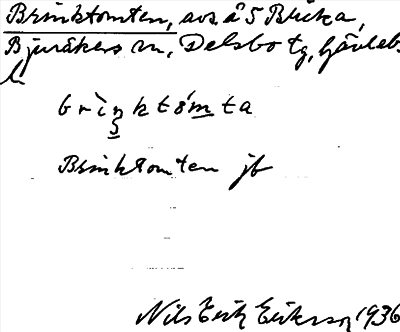 Brinktomten, avs å 5 Blicka,
Bjuråkers sn, Delsbo tg, Gävleb.
l
brìŋktóm̲ta
Brinktomten jb
Nils Erik Eriksson 1936